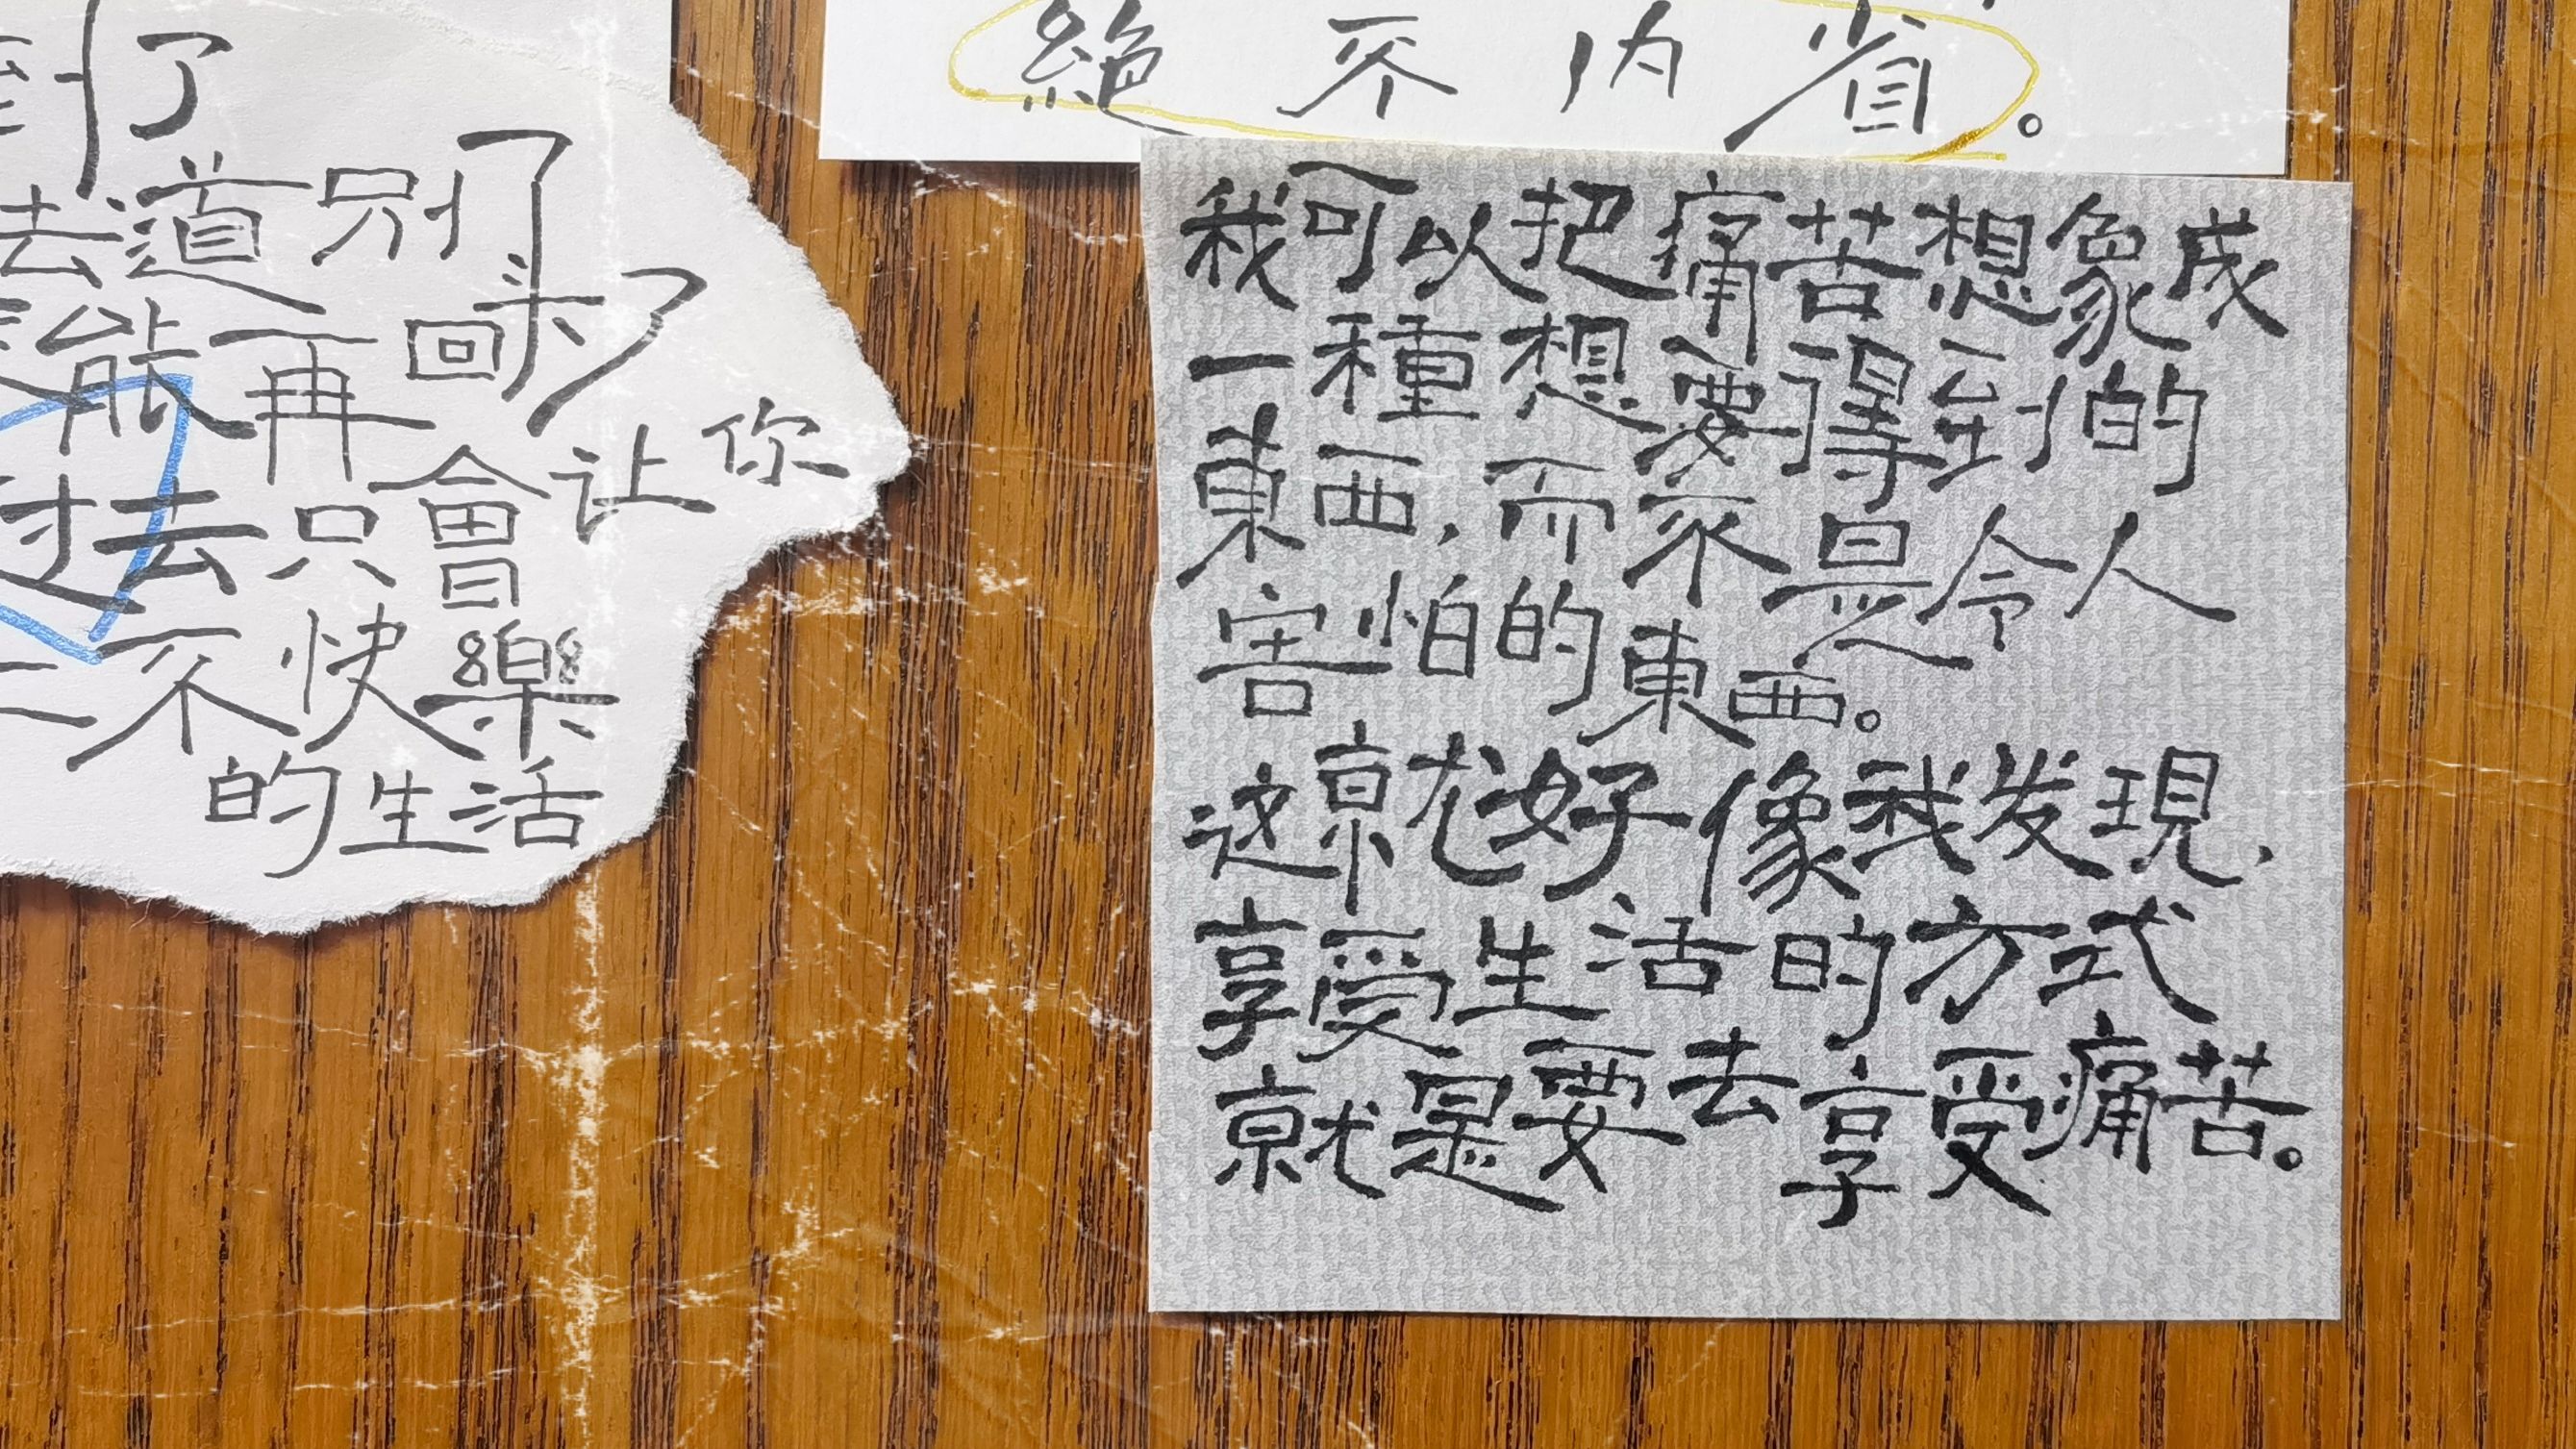 到了
去道别了
能再回头了
过去只會让你
二不快樂
的生活
絕不内省。
我可以把痛苦想象成
一種想要得到怕的
東西，而不是令人
害怕的東西。
这就好像我发現，
享受生活的方式
就是要去享受痛苦。